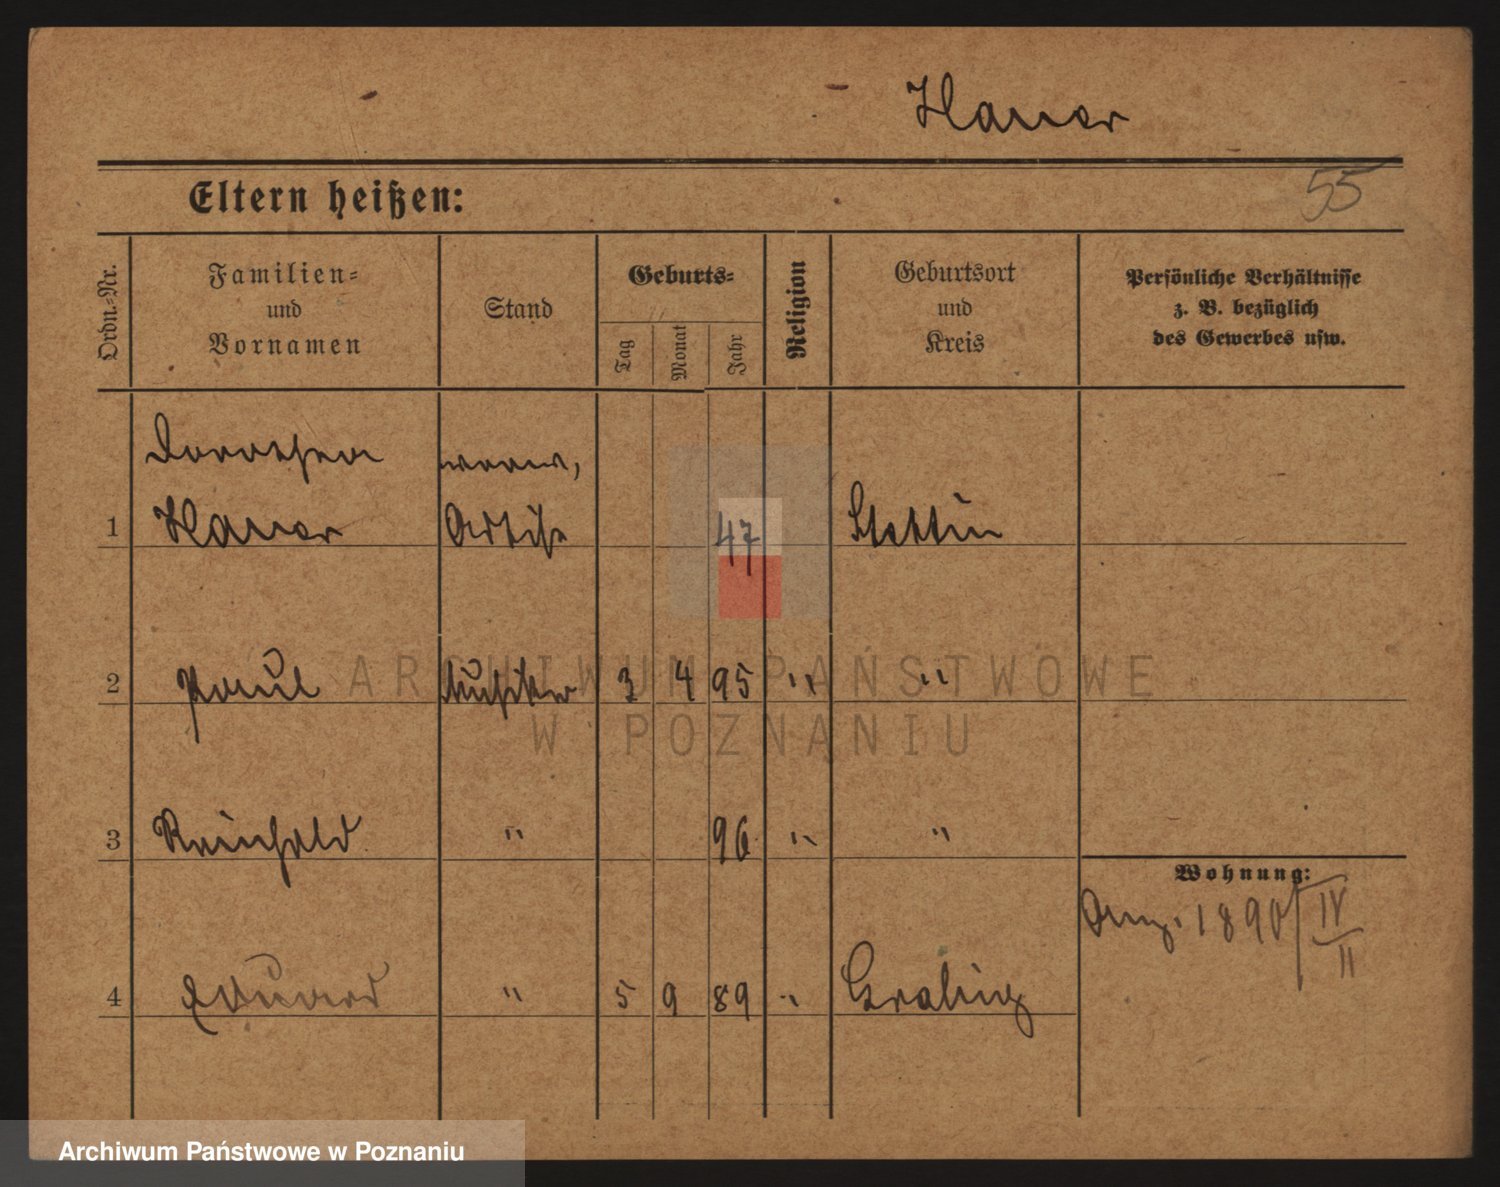 Hauer
Eltern heißen:
55
Ordn.-Nr.
Familien-
und
Vornamen
Stand
Geburts-
Tag
Monat
Jahr
Religion
Geburtsort
und
Kreis
Persönliche Verhältnisse
z. B. bezüglich
des Gewerbes usw.
Dorothea
1 Hauer 47 Stettin
2 Paul Musiker 3 4 95 " "
3 Reinhold " 96 " "
Wohnung:
1890 IV
II
4 Eduard " 5 9 89 "
ARCHIWUM PAŃSTWOWE
W POZNANIU
Archiwum Państwowe w Poznaniu